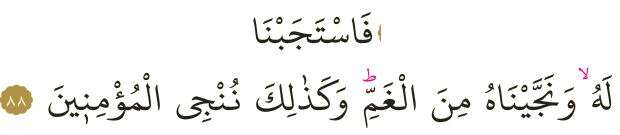 ﴿فَاسْتَجَبْنَا
لَهُ ۙ وَنَجَّيْنَاهُ مِنَ الْغَمِّ ۗ وَكَذٰلِكَ نُنْجِى الْمُؤْمِنٖينَ ٨٨